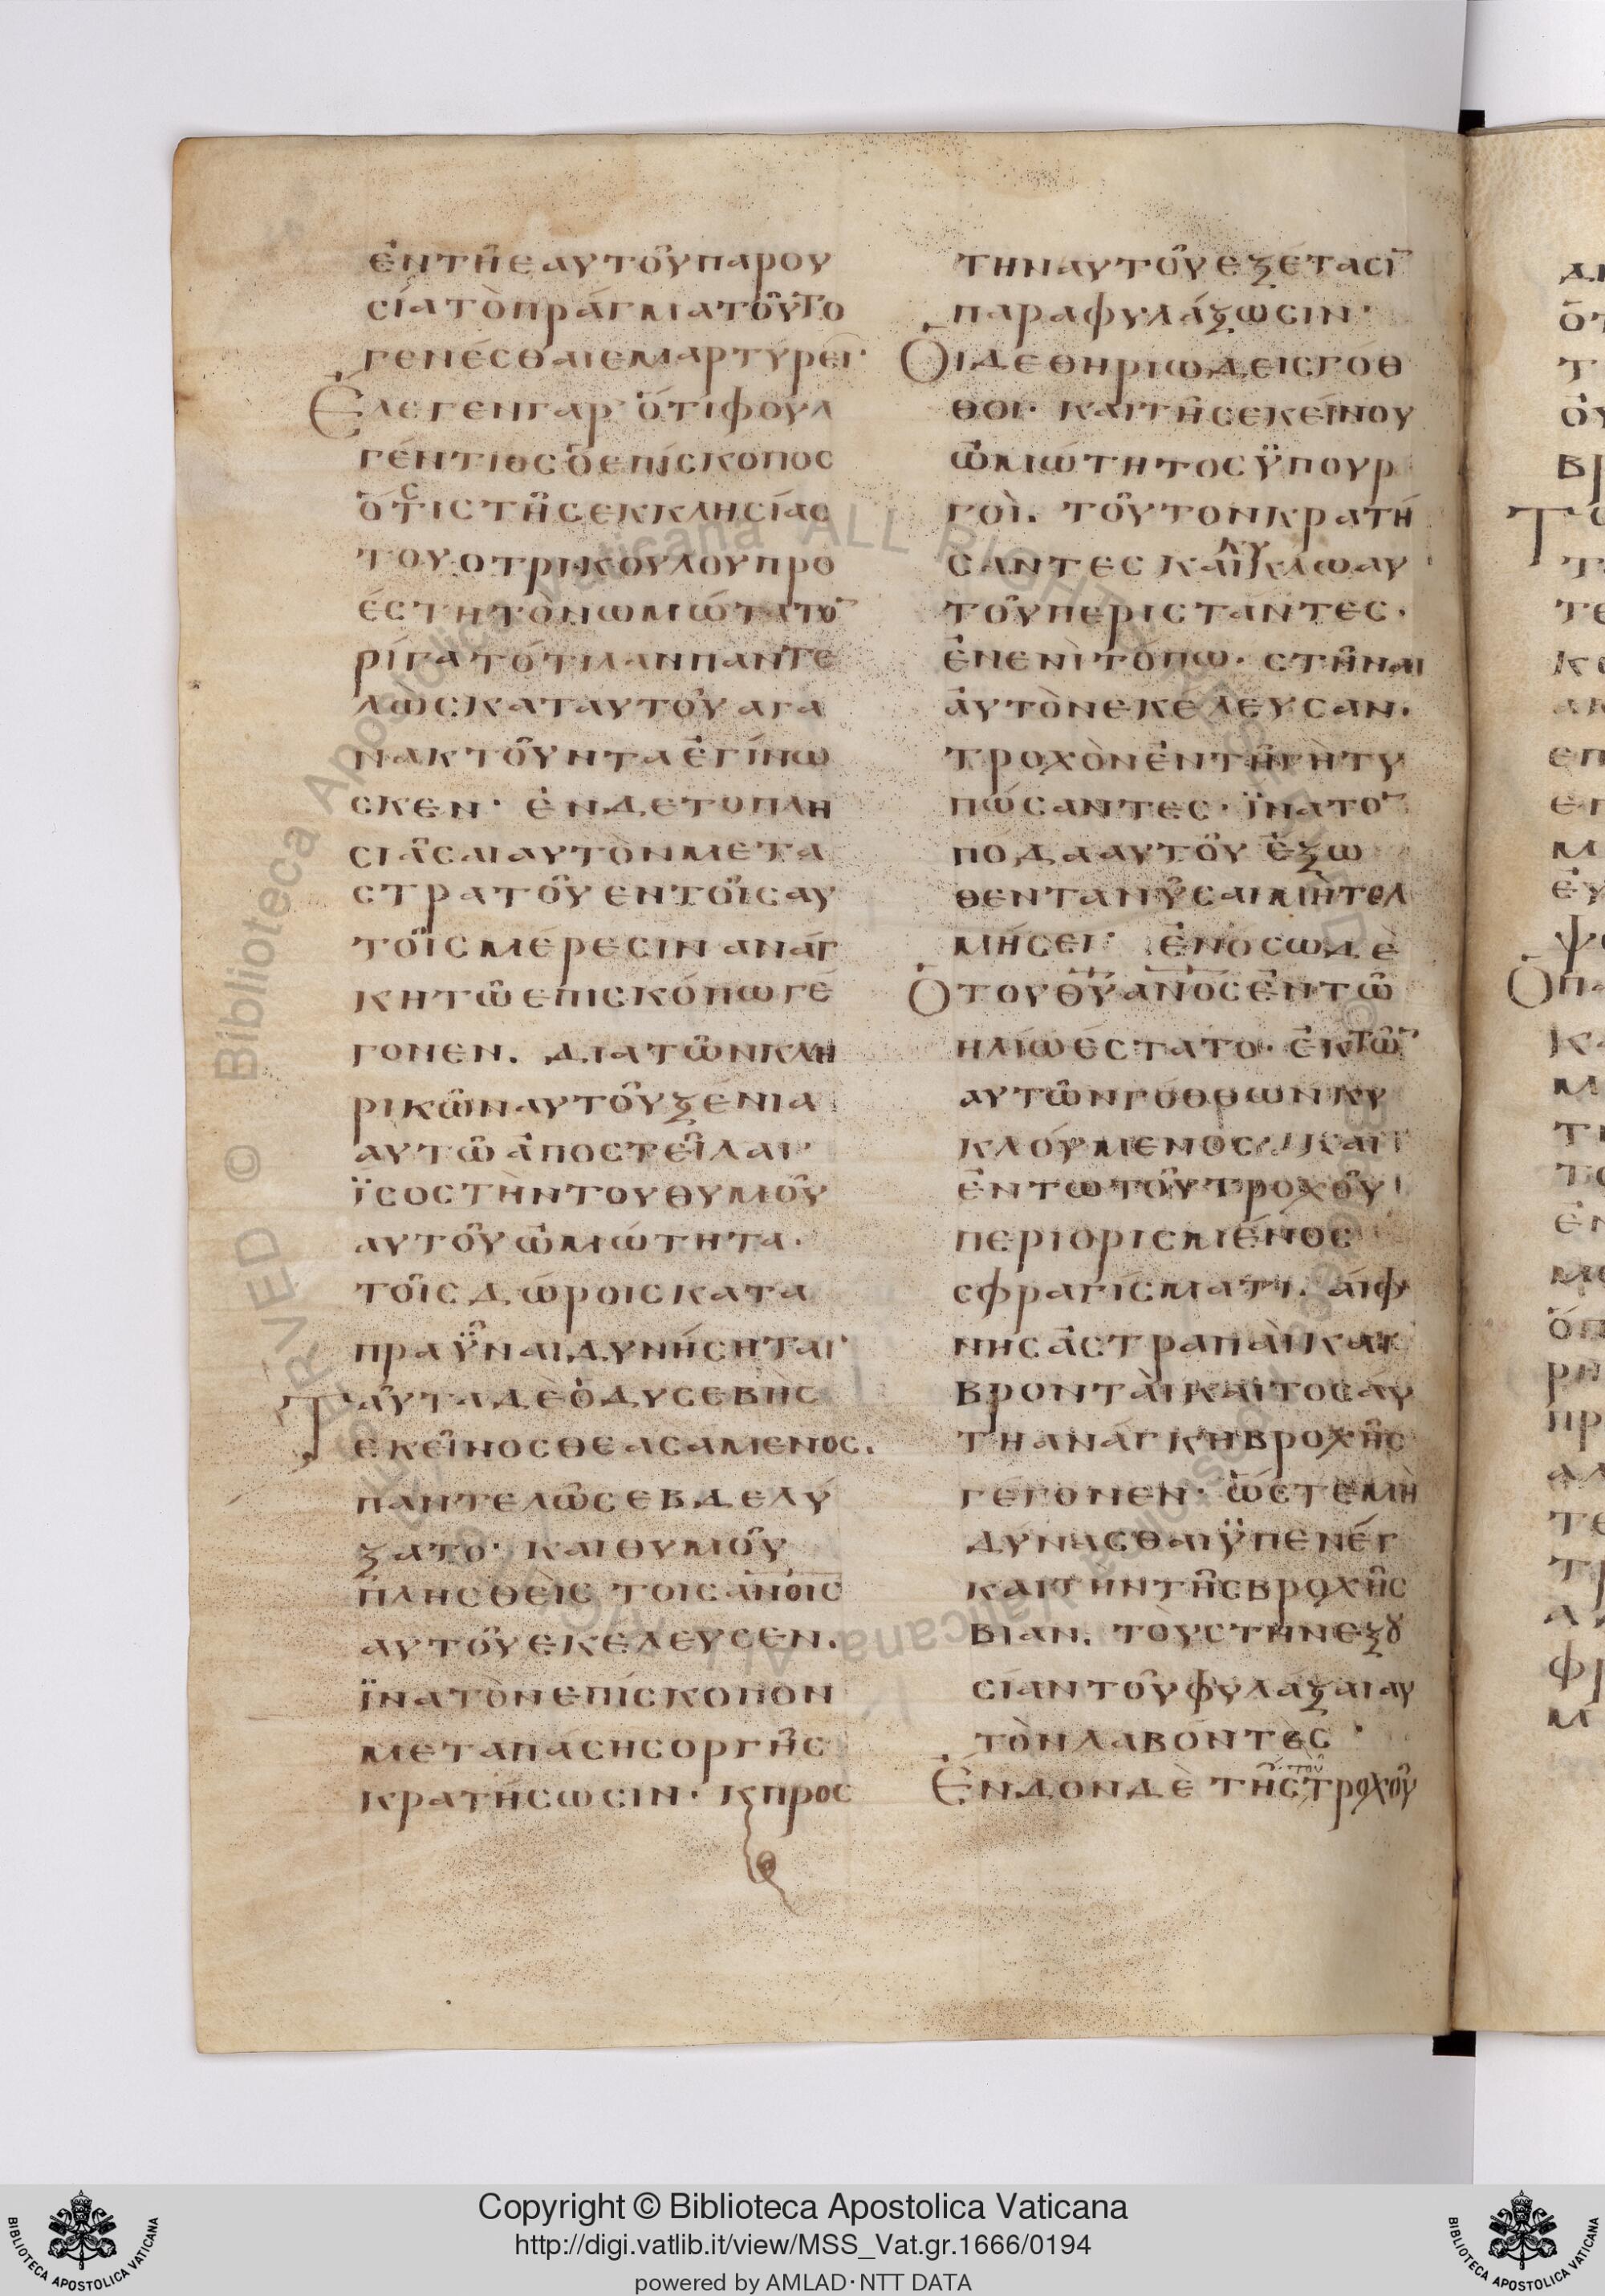 ἐντῆεαυτοῦπαρου
σίατὸπράγματοῦτο
γενέσθαιεμαρτύρει·
Ἔλεγενγαρ ὅτιφουλ
γέντιοςὁεπίσκοπος
ὅστιςτῆςεκκλησίας
τουοτρικουλουπρο
έςτητὸνωμώτατο̅
ρίγατότιλανπαντε
λωςκαταυτοῦαγα
νακτοῦνταἐγίνω
σκεν· ἐνδετοπλη
σιᾶσαιαυτὸνμετα
στρατοῦεντοῖςαυ
τοῖςμέρεσινανάγ
κητῶεπισκόπωγέ
γονεν. διατῶνκλη
ρικῶναυτοῦξένια
αυτῶἀποστεῖλαι·
ϊσοςτὴντουθυμοῦ
αυτοῦὠμώτητα.
τοῖςδώροιςκατα
πραϋ̂ναιδυνήσηται·
Ταῦταδὲὁδυσεβὴς
εκεῖνοςθεασαμενος.
παντελῶςεβδελύ
ξατο· καιθυμοῦ
πλησθεὶς τοιςἀν̅ο̅ι̅ς
αυτοῦεκέλευσεν.
ϊνατὸνεπίσκοπον
μεταπάσηςοργῆς
κρατήσωσιν· κπρος
τηναυτοῦεξέτασι̅
παραφυλάξωσιν·
Ὁιδεθηριώδειςγόθ
θοι· καιτῆςεκείνου
ὠμώτητοςϋπουρ
γοὶ. τοῦτονκρατή
σαντεςκαϊκυκλωαυ
τοῦπεριςταντες.
ἐνενὶτόπω. στῆναι
ἀυτὸνεκέλευσαν.
τροχὸνἐντῆγῆτυ
πώσαντες· ϊνατο̅
πόδααυτοῦ ἔξω
θεντανῦσαιμὴτολ
μήσει· ἐνόσωδὲ
Ὁτουθ̅υ̅αν̅ο̅ςἐντῶ
ηλίωέστατο· ἐκτῶ̅
αυτῶνγόθθωνκυ
κλούμενος· και
ἐντωτοῦτροχοῦ
περιορισμένος
σφραγίσματι. άιφ
νηςἀστραπὰικαι
βρονταὶκαιτοσάυ
τηανάγκηβροχῆς
γέγονεν· ὡςτεμὴ
δύνασθαιϋπενέγ
καιτὴντῆςβροχῆς
βιαν. τοὺςτηνεξȣ
σίαντοῦφυλάξαιαυ
τὸνλαβόντες·
Ἔνδονδὲ τῆςτοῦτροχοῦ
Copyright © Biblioteca Apostolica Vaticana
http://digi.vatlib.it/view/MSS_Vat.gr.1666/0194
powered by AMLAD·NTT DATA
BIBLIOTECA APOSTOLICA VATICANA
BIBLIOTECA APOSTOLICA VATICANA